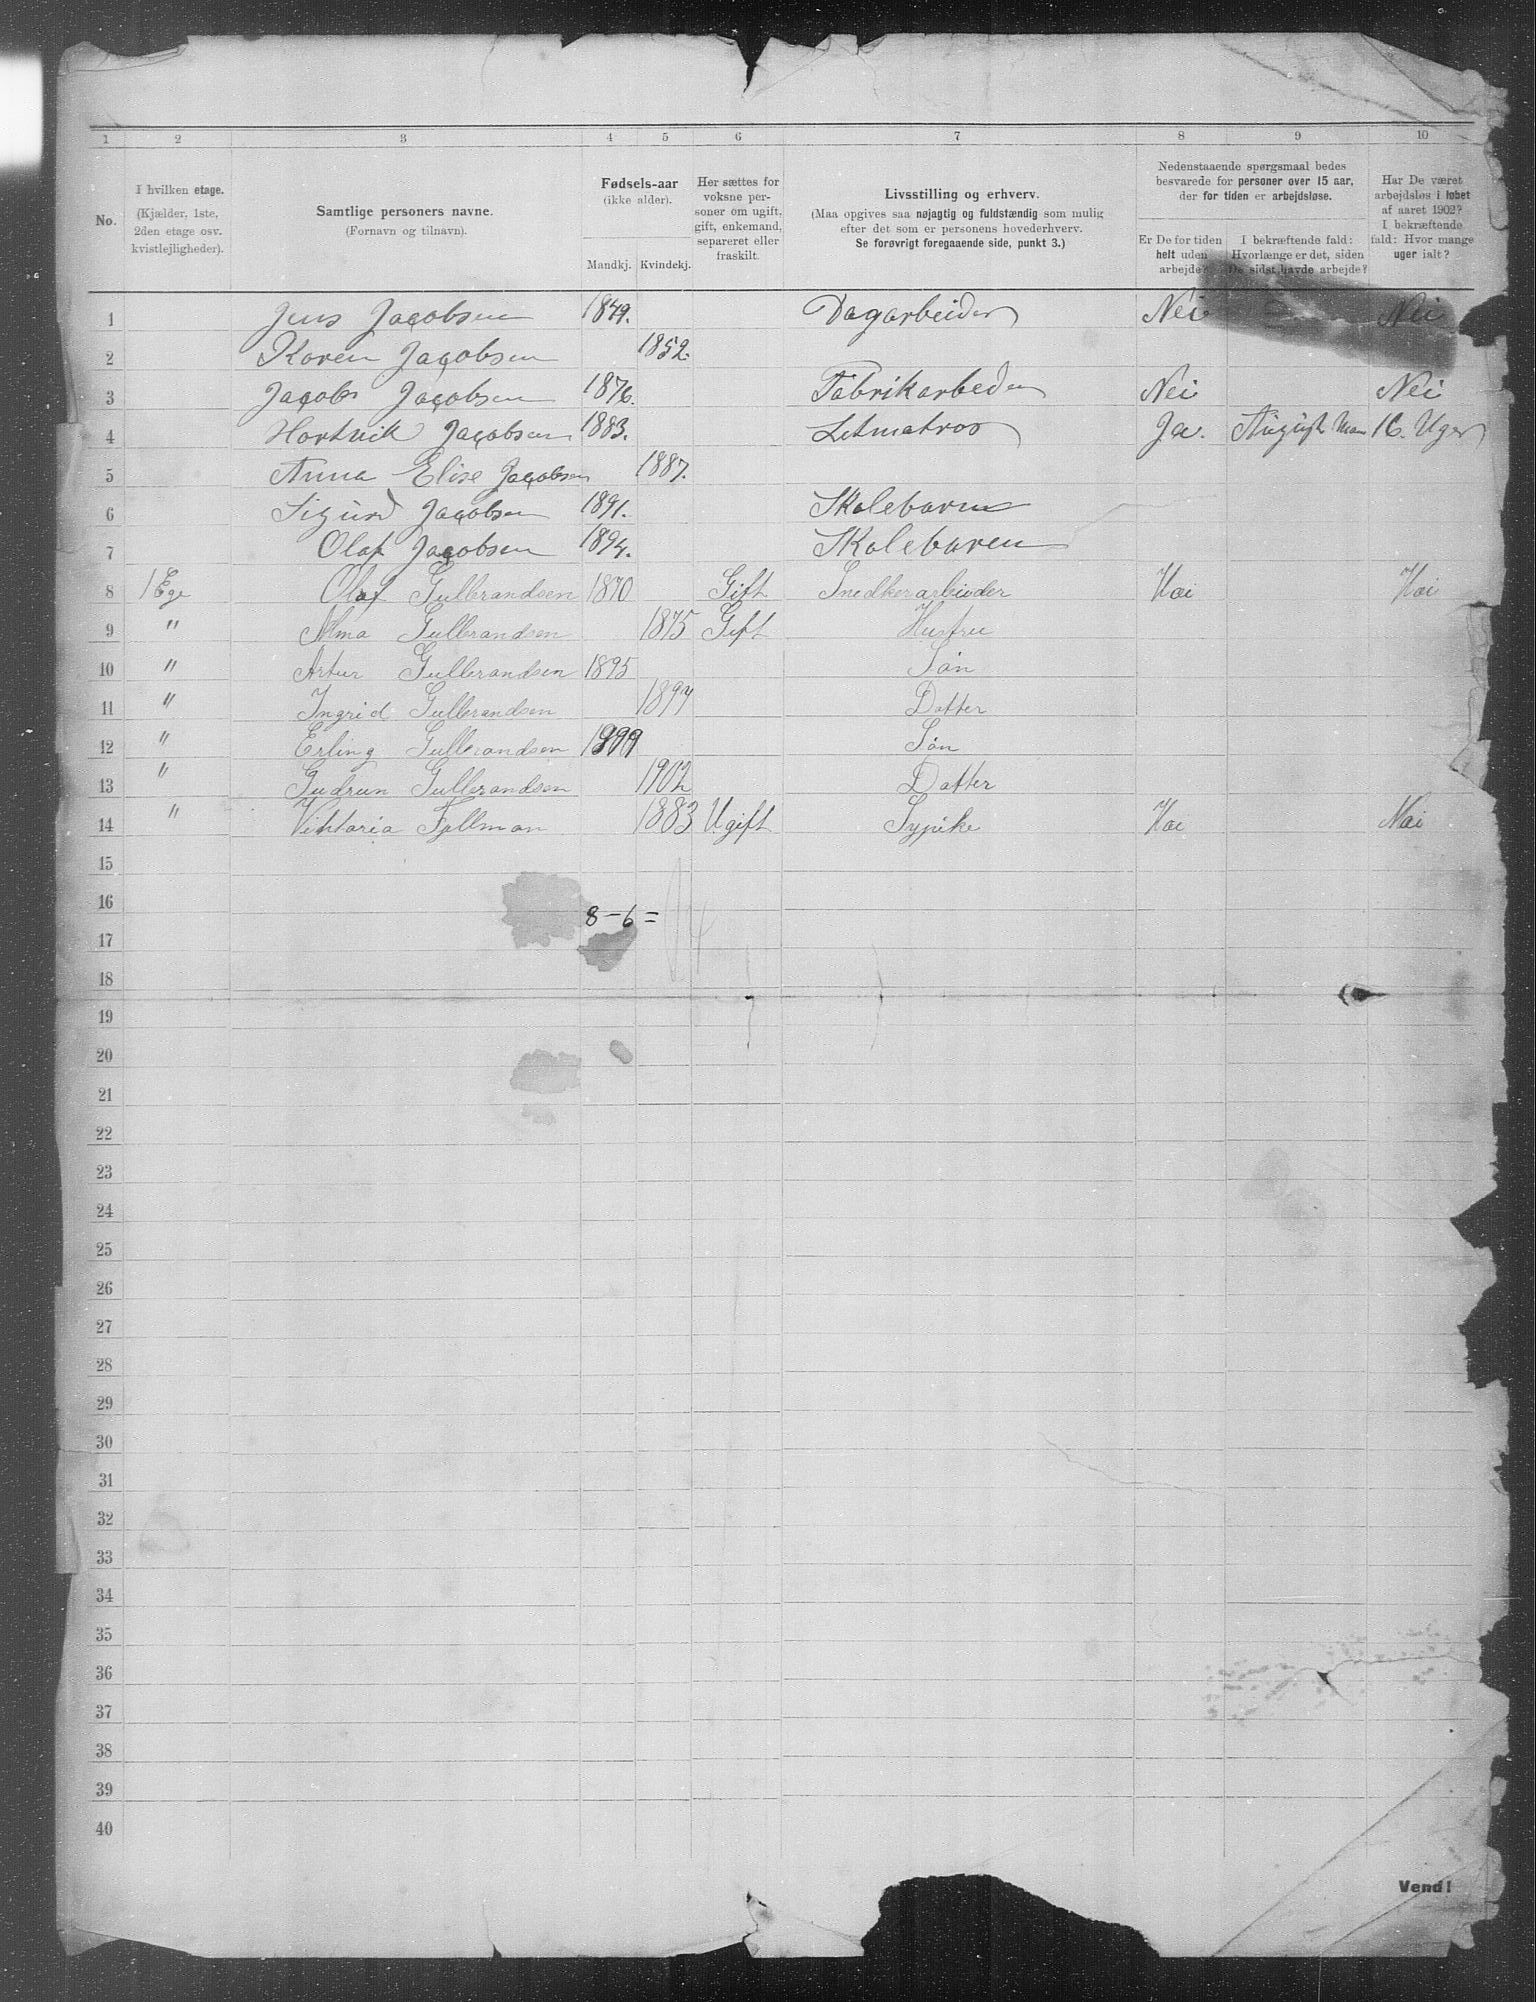 1 2 3 4 5 6 7 8 9 10
No.
I hvilken etage.
(Kjælder, 1ste,
2den etage osv.
kvistlejligheder).
Samtlige personers navne.
(Fornavn og tilnavn).
Fødsels-aar
(ikke alder).
Mandkj. Kvindekj.
Her sættes for
voksne per-
soner om ugift,
gift, enkemand,
separeret eller
fraskilt.
Livsstilling og erhverv.
(Maa opgives saa nøjagtig og fuldstændig som mulig
efter det som er personens hovederhverv.
Se forøvrigt foregaaende side, punkt 3.)
Nedenstaaende spørgsmaal bedes
besvarede for personer over 15 aar,
der for tiden er arbejdsløse.
Er De for tiden
helt uden
arbejde?
I bekræftende fald:
Hvorlænge er det, siden
De sidst havde arbejde?
Har De været
arbejdsløs i løbet
af aaret 1902?
I bekræftende
fald: Hvor mange
uger ialt?
1 Jens Jacobsen 1849. Dagarbeider Nei Nei
2 Karen Jacobsen 1852.
3 Jacob Jacobsen 1876. Fabrikarbeder Nei Nei
4 Hartvik Jacobsen 1883. Letmatros Ja. August 16. Uger
5 Anna Elise Jacobsen 1887.
6 Sigurd Jacobsen 1891. Skolebarn
7 Olaf Jacobsen 1894. Skolebaren
8 1 Ege Olaf Gulbrandsen 1870 Gift Snedkerarbeider Nei Nei
9 " Alma Gulbrandsen 1875 Gift Hustru
10 " Artur Gulbrandsen 1895 Søn
11 " Ingrid Gulbrandsen 1897 Datter
12 " Erling Gulbrandsen 1899 Søn
13 " Gudrun Gulbrandsen 1902 Datter
14 " Viktoria Fellman 1883 Ugift Sypike Nei Nei
15
16
8-6= 14
17
18
19
20
21
22
23
24
25
26
27
28
29
30
31
32
33
34
35
36
37
38
39
40
Vend!